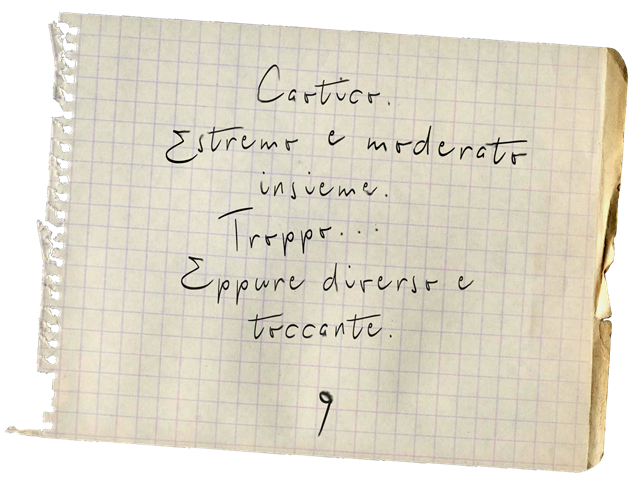 Caotico.
Estremo e moderato
insieme.
Troppo...
Eppure diverso e
toccante.
9